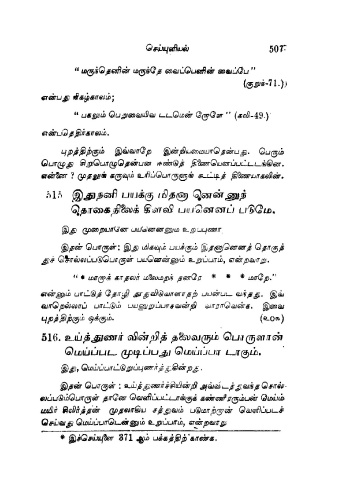 செய்யுளியல் 507
“ மருந்தெனின் மருந்தே வைப்பெனின் வைப்பே ”
(குறுந்-71.))
என்பது நிகழ்காலம்;
“ பகலும் பெறுவையிவ டடமென் றோளே ” (கலி-49.)
என்பதெதிர்காலம்.
புறத்திற்கும் இவ்வாறே இன்றியமையாதென்பது. பெரும்
பொழுது சிறுபொழுதென்பன ஈண்டுத் திணையெனப்பட்டடங்கின.
என்னை ? முதலுங் கருவும் உரிப்பொருளுங் கூட்டித் திணையாகலின்.
515 இதுநனி பயக்கு மிதனா னென்னுந்
தொகைநிலைக் கிளவி பயனெனப் படுமே.
இது முறையானே பயனென்னும் உறுப்புணர்
இதன் பொருள்: இது மிகவும் பயக்கும் இதனானெனத் தொகுத்
துச் சொல்லப்படுபொருள் பயனென்னும் உறுப்பாம், என்றவாறு.
“ * மாருக் காதலர் மலைமறந் தனரே * * * மாதே.”
என்னும் பாட்டுத் தோழி தூதுவிடுவாளாதற் பயன்பட வந்தது. இவ்
வாறெல்லாப் பாட்டும் பயனுறுப்பாதலன்றி வாராவென்க. இவை
புறத்திற்கும் ஒக்கும். (௨௦௩)
516. உய்த்துணர் வின்றித் தலைவரும் பொருளான்
மெய்ப்பட முடிப்பது மெய்ப்பா டாகும்.
இது, மெய்ப்பாட்டுறுப்புணர்த்துகின்றது.
இதன் பொருள் : உய்த்துணர்ச்சியின்றி அவ்விடத்துவந்த சொல்
லப்படும்பொருள் தானே வெளிப்பட்டாங்குக் கண்ணீரரும்பன் மெய்ம்
மயிர் சிலிர்த்தன் முதலாகிய சத்துவம் படுமாற்றான் வெளிப்படச்
செய்வது மெய்ப்பாடென்னும் உறுப்பாம், என்றவாறு
* இச்செய்யுளை 371 ஆம் பக்கத்திற் காண்க.